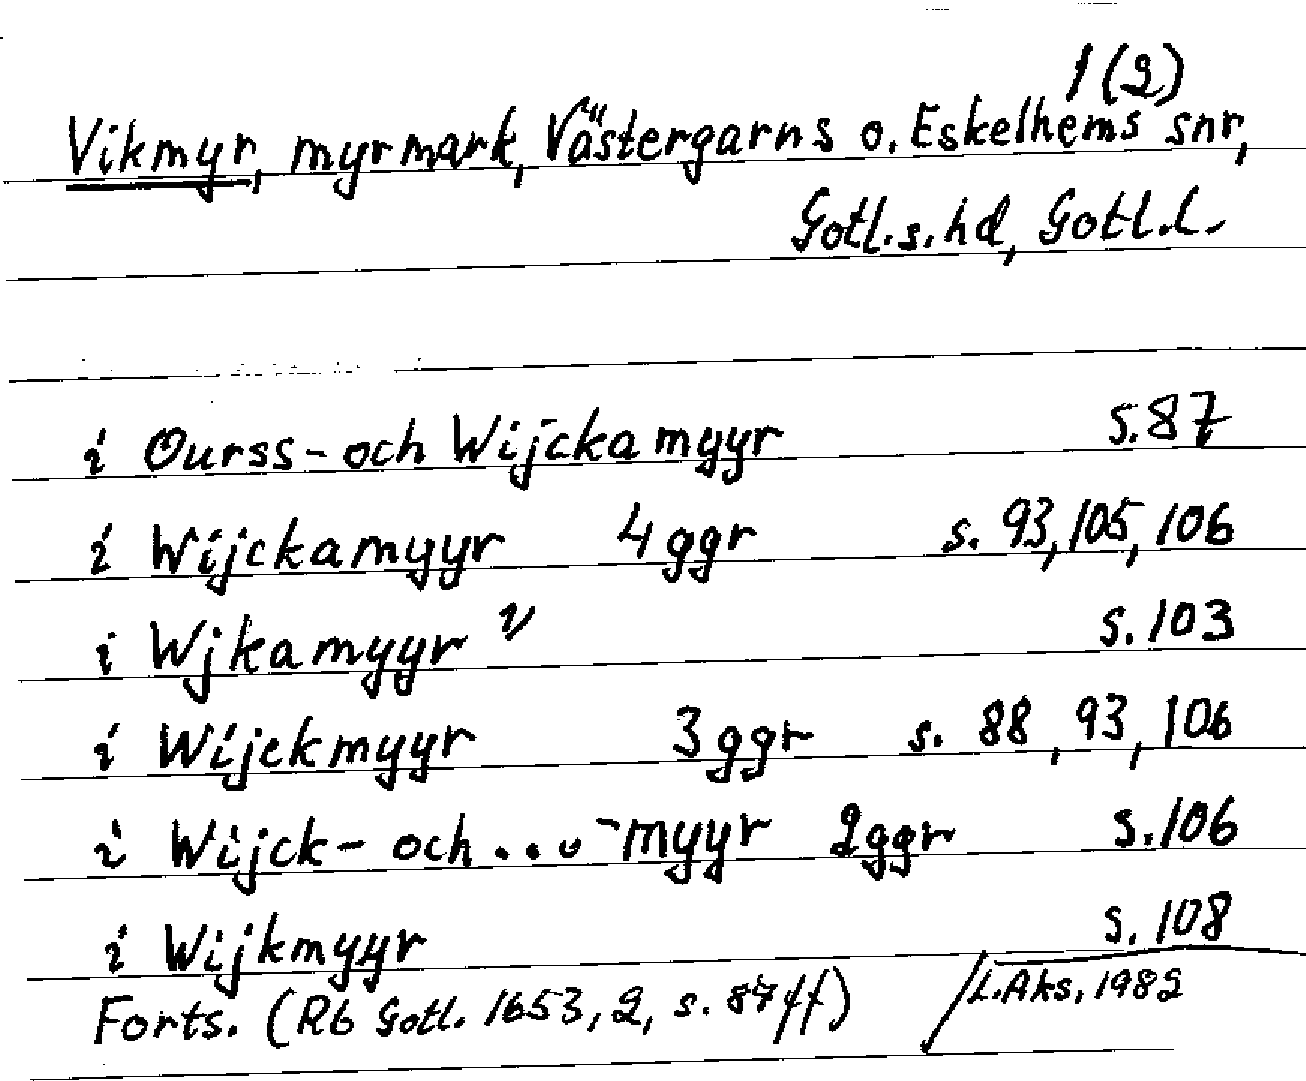 1 (2)
Vikmyr, myrmark, Västergarns o. Eskelhems snr,
Gotl.s.hd, Gotl.l.
i Ourss-och Wijckamyyr s.87
i Wijckamyyr 4 ggr s. 93, 105, 106
i Wjkamyyr v s.103
i Wijckmyyr 3 ggr s. 88, 93, 106
i Wijck- och... -myyr 2ggr s.106
i Wijkmyyr s. 108
Forts. (Rb Gotl. 1653, 2, s. 87 ff) L.Aks. 1982